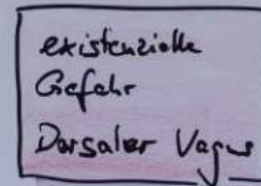 existenzielle
Gefahr
Dorsaler Vagus